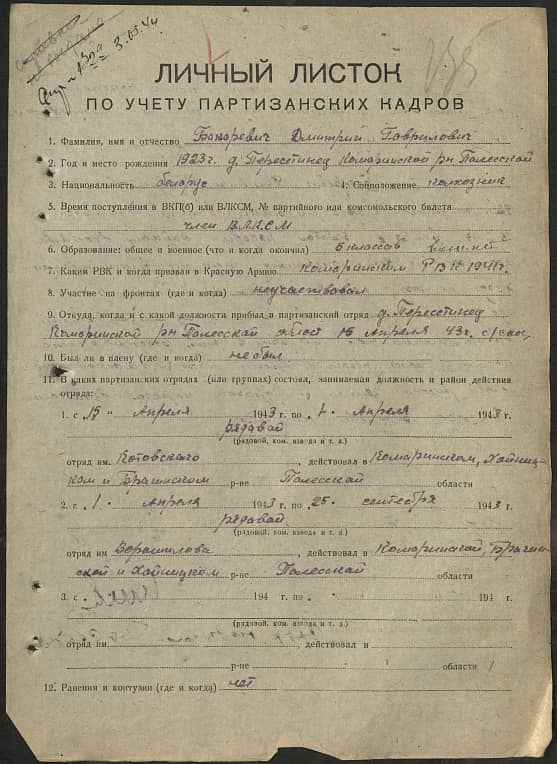 3.05.44
ЛИЧНЫЙ ЛИСТОК
ПО УЧЕТУ ПАРТИЗАНСКИХ КАДРОВ
1. Фамилия, имя и отчество Бокаревич Дмитрий Гаврилович
2. Год и место рождения 1923 г. д. Перестинец Комаринской рн Полесской
3. Национальность беларус 4. Соцположение колхозник
5. Время поступления в ВКП(б) или ВЛКСМ, № партийного или комсомольского билета
член ВЛКСМ
6. Образование: общее и военное (что и когда окончил) 6 классов
7. Каким РВК и когда призван в Красную Армию Комаринском РВК 1941 г.
8. Участие на фронтах (где и когда) неучаствовал
9. Откуда, когда и с какой должности прибыл в партизанский отряд д. Пересетинец
Комаринской рн Полесской област 15 Апреля 43 г.
10. Был ли в плену (где и когда) не был
11. В каких партизанских отрядах (или группах) состоял, занимаемая должность и район действия
отряда:
1. с 15 " Апреля 1943 г. по 1 Апреля 1943 г.
рядавой
(рядовой, ком. взвода и т. д.)
отряд им. Котовского, действовал в Комаринском, Хойниц-
ком и Брагинском р-не Полесской области
2. с 1 Апреля 1943 г. по 25 сентебря 1943 г.
рядавой
(рядовой, ком. взвода и т. д.)
отряд им Ворашилова, действовал в Комаринской, Брагин-
ской и Хойницком р-не Полесской области
3. с 194 г. по 194 г.
(рядовой, ком. взвода и т. д.)
отряд им. действовал в
р-не области
12. Ранения и контузии (где и когда) нет